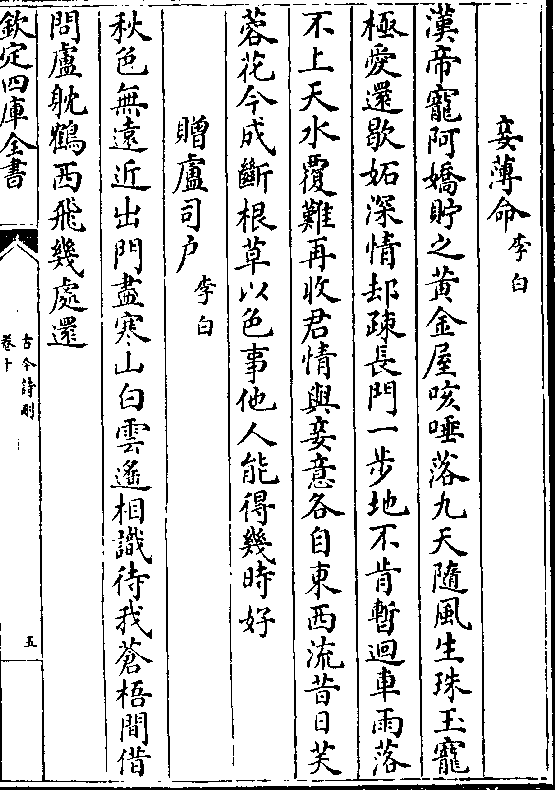 妾薄命李白
漢帝寵阿嬌貯之黃金屋咳唾落九天隨風生珠玉寵
極愛還歇妬深情却疎長門一步地不肯暫迴車雨落
不上天水覆難再收君情與妾意各自東西流昔日芙
蓉花今成斷根草以色事他人能得幾時好
贈盧司户李白
秋色無遠近出門盡寒山白雲遙相識待我蒼梧間借
問盧躭鶴西飛幾處還
欽定四庫全書
古今詩刪
卷十
五